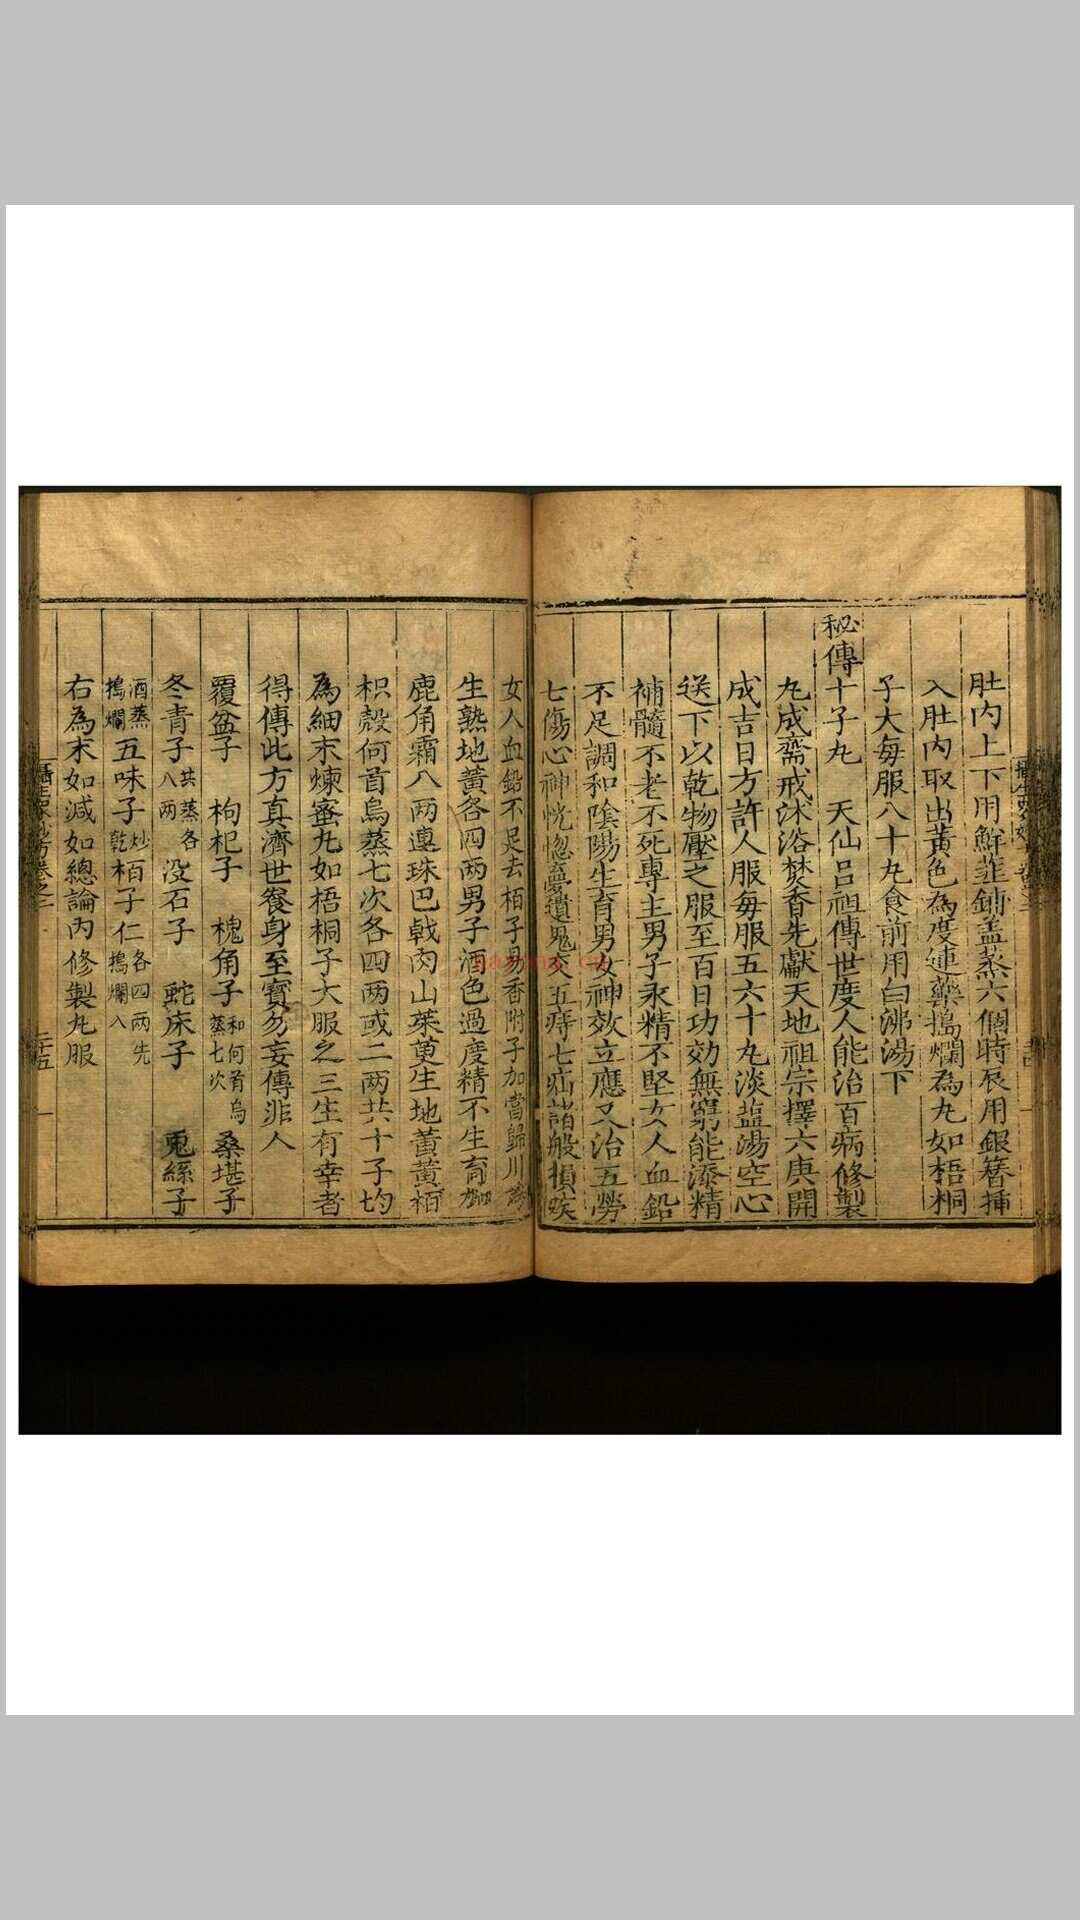 肚内上下用鮮韮鋪盖蒸六個時辰用銀簪揷
入肚内取出黃色為度連藥搗爛為丸如梧桐
子大每服八十丸食前用白沸湯下
秘傳十子丸 天仙吕祖傳世度人能治百病修製
丸成齋戒沐浴焚香先獻天地祖宗擇六庚開
成吉日方許人服每服五六十丸淡盐湯空心
送下以乾物壓之服至百日功効無窮能添精
補髓不老不死專主男子永精不堅女人血鉛
不足調和陰陽生育男女神效立應又治五勞
七傷心神恍惚夢遺鬼交五痔七疝諸般損疾
女人血鉛不足去栢子易香附子加當歸川
生熟地黃各四两男子酒色過度精不生育
鹿角霜八两連珠巴戟肉山茱萸生地黃黃栢
枳殼何首烏蒸七次各四两或二两共十子均
為細末煉蜜丸如梧桐子大服之三生有幸者
得傳此方真濟世養身至寶勿妄傳非人
覆盆子 枸杞子 槐角子和何首烏蒸七次 桑堪子
冬青子共蒸各八两 没石子 蛇床子 兎絲子
酒蒸搗爛 五味子炒乾 栢子仁各四两先搗爛入
右為末如減如總論内修製丸服
二十五